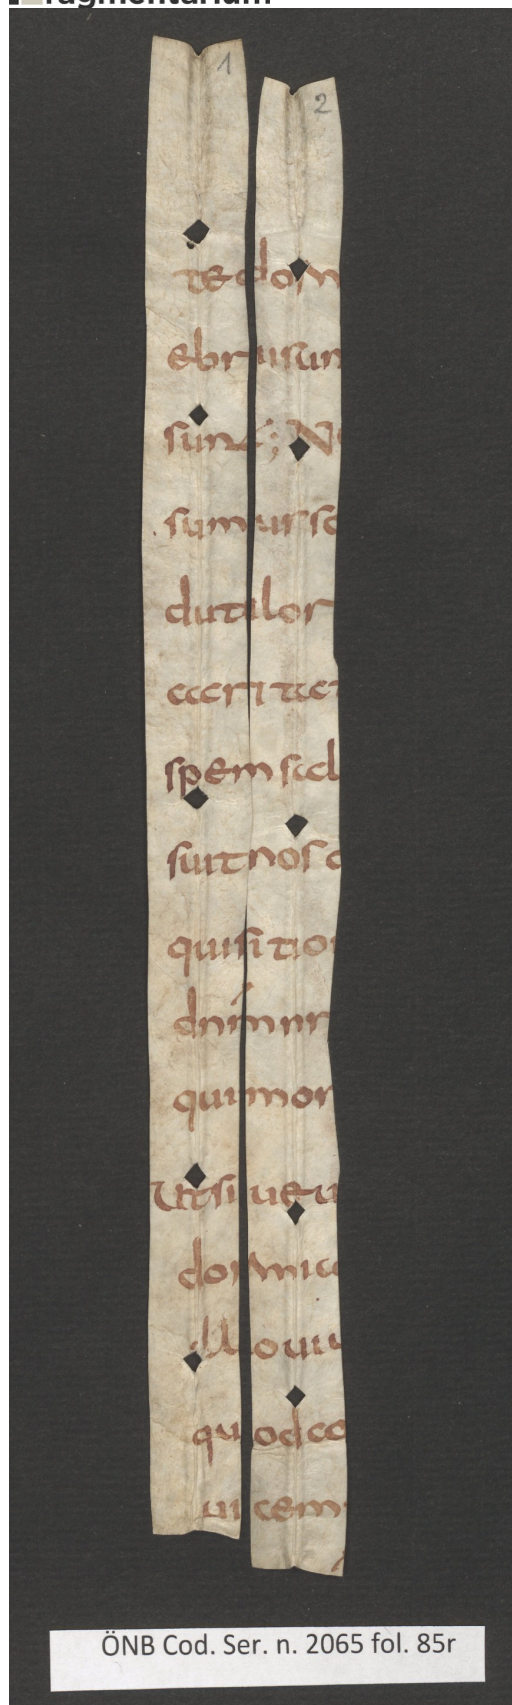 fragmentarium
1 2
te dorm
ebrii sun
sunt; N
sumus so
duti lor
caritat
spem sal
suit nos
quisitio
dnm nr
qui mor
Ut siue ui
dormia
illo uiu
quod co
uicem
ÖNB Cod. Ser. n. 2065 fol. 85r